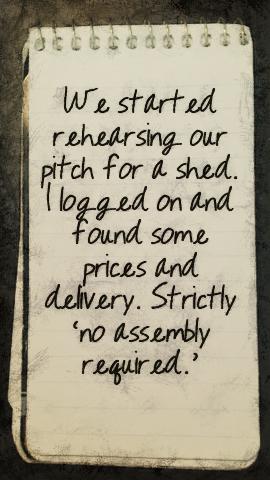 We started
rehearsing our
pitch for a shed.
I logged on and
found some
prices and
delivery. Strictly
'no assembly
required.'